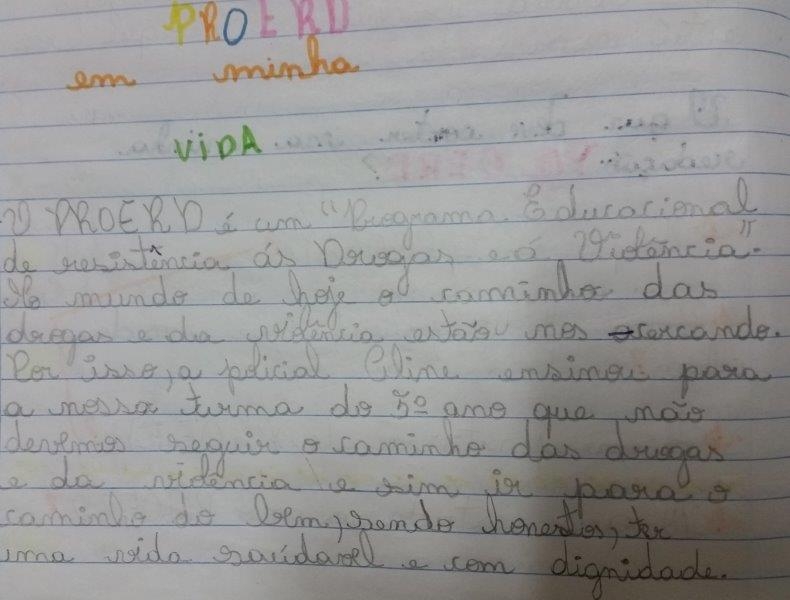 PROERD
em minha
VIDA
O PROERD é um "Programa Educacional
de resistência ás Drogas e á Violência".
No mundo de hoje o caminho das
drogas e da violência estão nos cercando.
Por isso, a policial Aline ensinou para
a nossa turma do 5º ano que não
devemos seguir o caminho das drogas
e da violência e sim ir para o
caminho do bem, sendo honestos, ter
uma vida saúdavel e com dignidade.